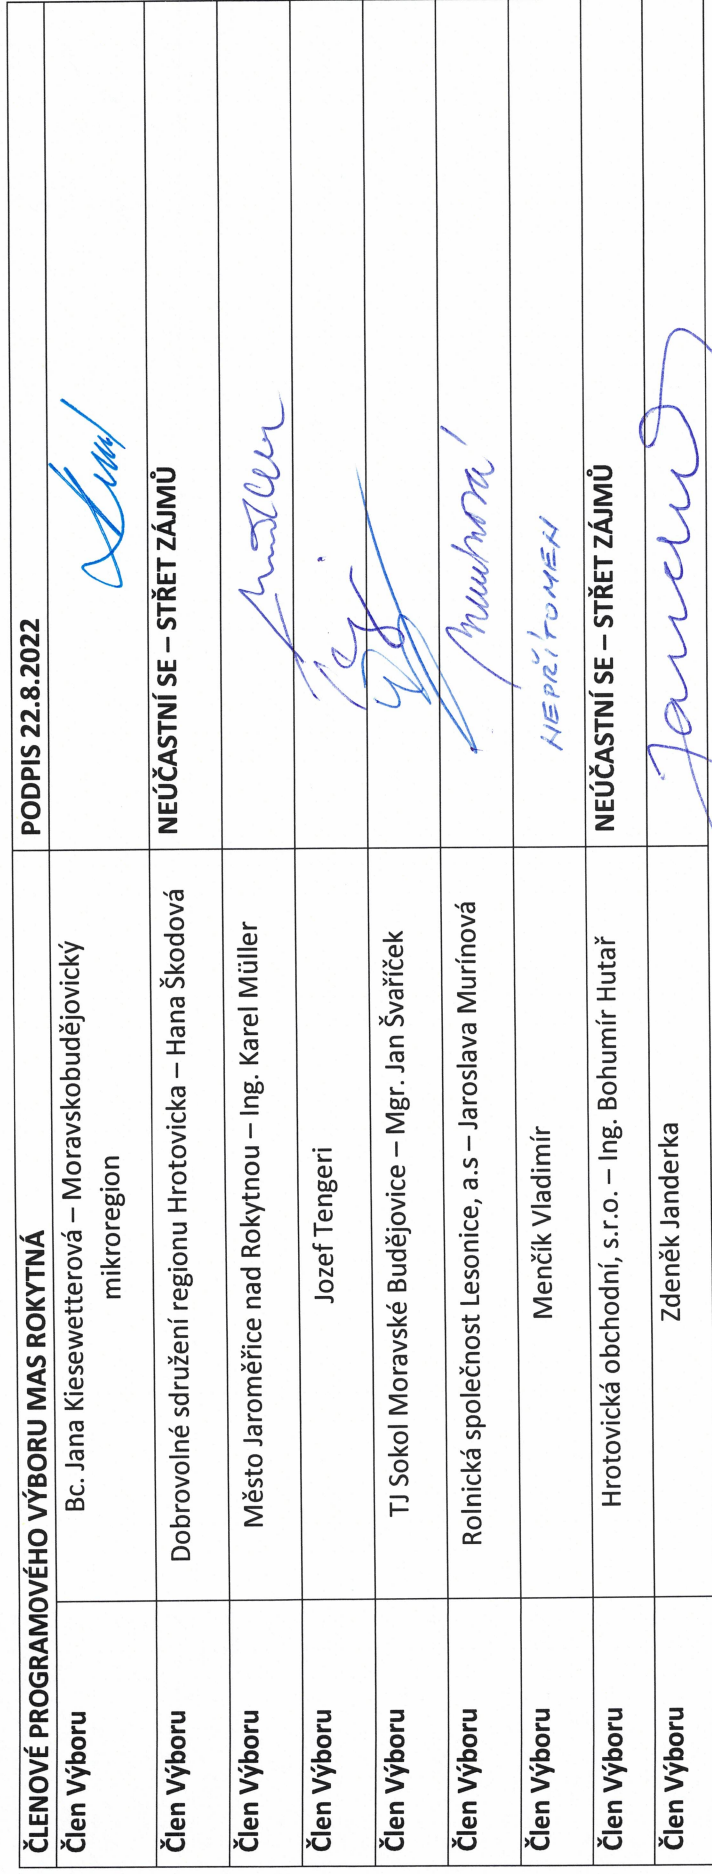 ČLENOVÉ PROGRAMOVÉHO VÝBORU MAS ROKYTNÁ PODPIS 22.8.2022
Člen Výboru Bc. Jana Kiesewetterová – Moravskobudějovický
mikroregion
Člen Výboru Dobrovolné sdružení regionu Hrotovicka – Hana Škodová NEÚČASTNÍ SE – STŘET ZÁJMŮ
Člen Výboru Město Jaroměřice nad Rokytnou – Ing. Karel Müller
Člen Výboru Jozef Tengeri
Člen Výboru TJ Sokol Moravské Budějovice – Mgr. Jan Švaříček
Člen Výboru Rolnická společnost Lesonice, a.s – Jaroslava Murínová
Člen Výboru Menčík Vladimír NEPŘÍTOMEN
Člen Výboru Hrotovická obchodní, s.r.o. – Ing. Bohumír Hutař NEÚČASTNÍ SE – STŘET ZÁJMŮ
Člen Výboru Zdeněk Janderka